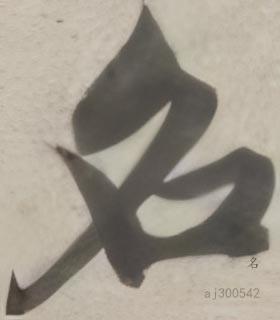 名
名
aj300542